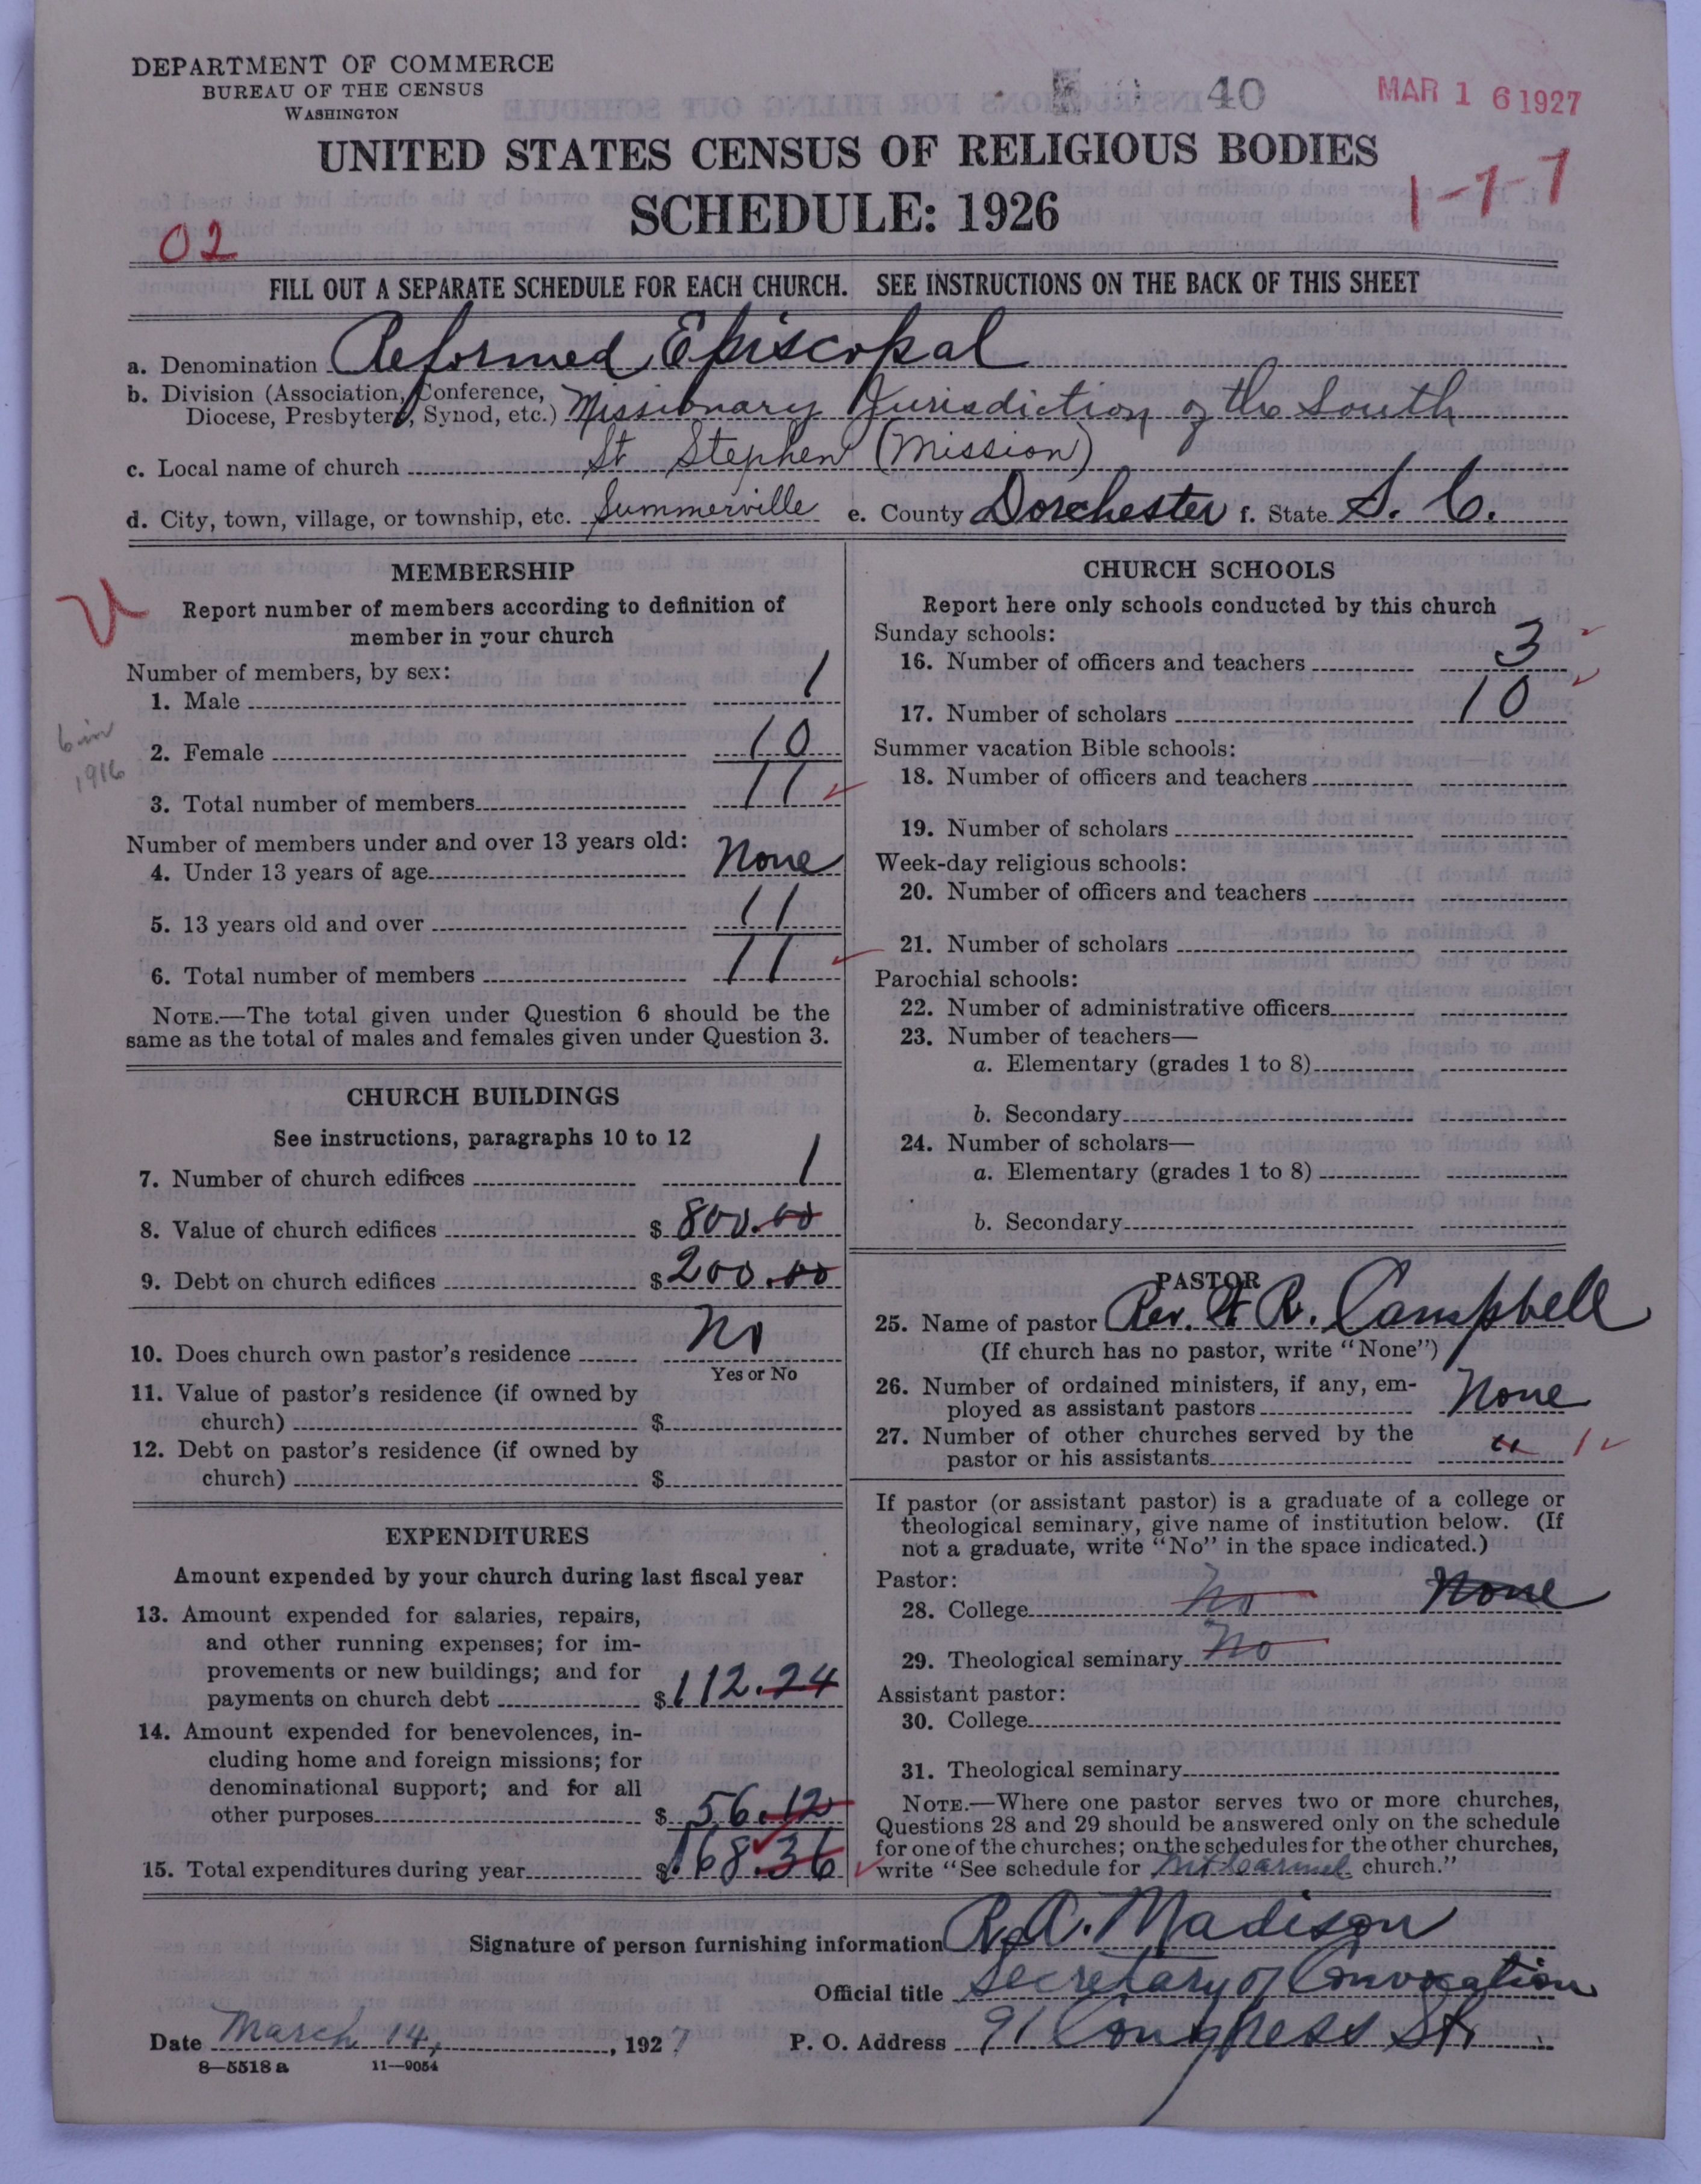 DEPARTMENT OF COMMERCE
BUREAU OF THE CENSUS
WASHINGTON
40
MAR 16 1927
UNITED STATES CENSUS OF RELIGIOUS BODIES
SCHEDULE: 1926
1-7-7
02
FILL OUT A SEPARATE SCHEDULE FOR EACH CHURCH. SEE INSTRUCTIONS ON THE BACK OF THIS SHEET
a. Denomination Reformed Episcopal
b. Division (Association, Conference,
Diocese, Presbytery, Synod, etc.) Missionary Jurisdiction of the South
c. Local name of church St Stephen (Mission)
d. City, town, village, or township, etc. Summerville e. County Dorchester f. State S. C.
MEMBERSHIP
Report number of members according to definition of
member in your church
Number of members, by sex:
1. Male 1
6 in
1916
2. Female 10
3. Total number of members 11
Number of members under and over 13 years old:
4. Under 13 years of age None
5. 13 years old and over 11
6. Total number of members 11
NOTE.—The total given under Question 6 should be the
same as the total of males and females given under Question 3.
CHURCH BUILDINGS
See instructions, paragraphs 10 to 12
7. Number of church edifices 1
8. Value of church edifices $ 800.00
9. Debt on church edifices $ 200.00
10. Does church own pastor's residence No
Yes or No
11. Value of pastor's residence (if owned by
church) $
12. Debt on pastor's residence (if owned by
church) $
EXPENDITURES
Amount expended by your church during last fiscal year
13. Amount expended for salaries, repairs,
and other running expenses; for im-
provements or new buildings; and for
payments on church debt $ 112.24
14. Amount expended for benevolences, in-
cluding home and foreign missions; for
denominational support; and for all
other purposes $ 56.12
15. Total expenditures during year $ 168.36
CHURCH SCHOOLS
Report here only schools conducted by this church
Sunday schools:
16. Number of officers and teachers 3
17. Number of scholars 10
Summer vacation Bible schools:
18. Number of officers and teachers
19. Number of scholars
Week-day religious schools:
20. Number of officers and teachers
21. Number of scholars
Parochial schools:
22. Number of administrative officers
23. Number of teachers—
a. Elementary (grades 1 to 8)
b. Secondary
24. Number of scholars—
a. Elementary (grades 1 to 8)
b. Secondary
PASTOR
25. Name of pastor Rev. R. Campbell
(If church has no pastor, write "None")
26. Number of ordained ministers, if any, em-
ployed as assistant pastors None
27. Number of other churches served by the
pastor or his assistants " 1
If pastor (or assistant pastor) is a graduate of a college or
theological seminary, give name of institution below. (If
not a graduate, write "No" in the space indicated.)
Pastor:
28. College No None
29. Theological seminary No
Assistant pastor:
30. College
31. Theological seminary
NOTE.—Where one pastor serves two or more churches,
Questions 28 and 29 should be answered only on the schedule
for one of the churches; on the schedules for the other churches,
write "See schedule for Mt Carmel church."
Signature of person furnishing information R. A. Madison
Official title Secretary of Convocation
Date March 14, 1927 P. O. Address 91 Congress St.
8—5518 a 11—9054